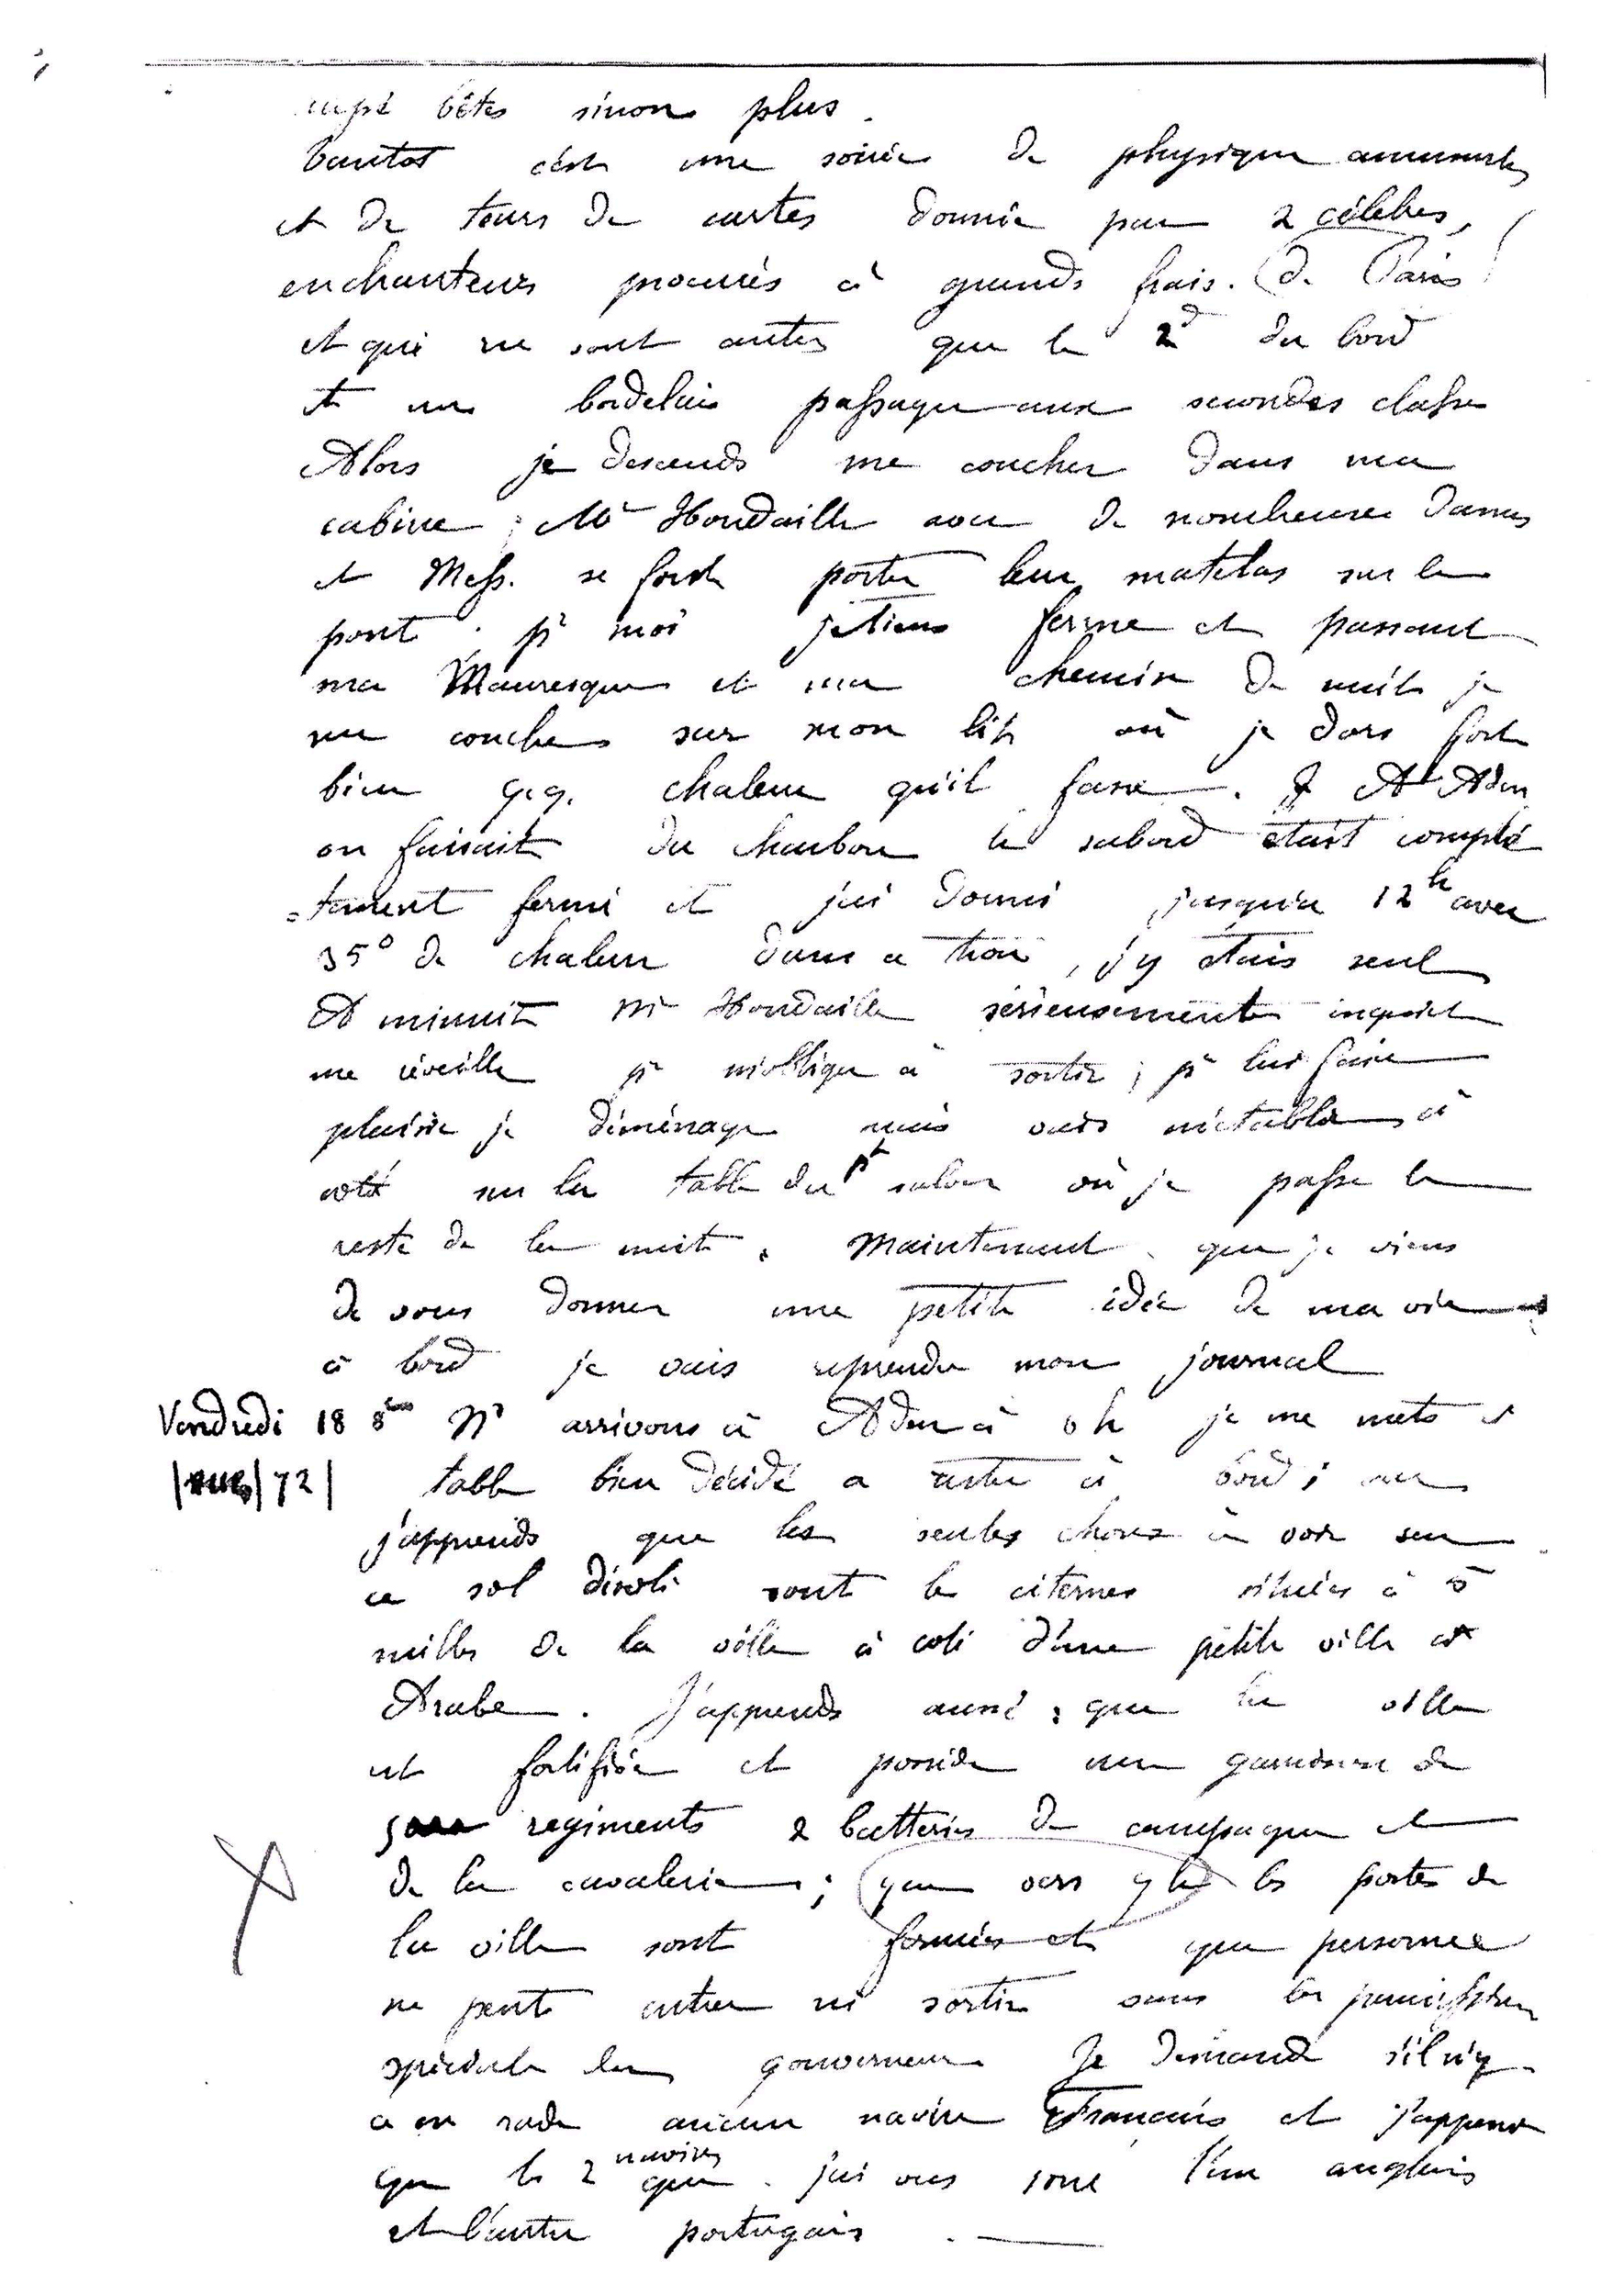 bêtes sinon plus.
tantot c'est une soirée de physique amusante
et de tours de cartes donnée par 2 célèbres,
enchanteurs procurés à grands frais. (de Paris !
et qui ne sont autres que le 2d du bord
et un bordelais passager aux secondes classe
Alors je descends me coucher dans ma
cabine ; Mr Houdaille avec de nombreuses dames
et Mess. se font porter leur matelas sur le
pont. pr moi je tiens ferme et passant
ma Mauresque et ma chemise de nuit je
me couche sur mon lit où je dors fort
bien q.q. chaleur qu'il fasse. A Aden
on faisait du charbon le sabord était complè
=tement fermé et j'ai dormi jusqu'à 12h avec
35° de chaleur dans ce trou, j'y étais seul
A minuit Mr Houdaille sérieusement inquiet
me réveille pr m'obliger à sortir ; pr lui faire
plaisir je déménage mais vais m'établir à
coté sur la table du pt salon où je passe le
reste de la nuit. Maintenant que je viens
de vous donner une petite idée de ma vie
à bord je vais reprendre mon journal
Vendredi 18 8bre Ns arrivons à Aden à 6h je me mets à
|72| table bien décidé a rester à bord ; car
j'apprends que les seules choses à voir sur
ce sol désolé sont les citernes situées à 5
milles de la ville à coté d'une petite ville
Arabe. J'apprends aussi que la ville
est fortifiée et possède une garnison de
5 regiments 2 batteries de campagne et
de la cavalerie ; que vers 9h les portes de
la ville sont fermées et que personne
ne peut entrer ni sortir sans la permission
spéciale du gouverneur Je demande s'il n'y
a en rade aucun navire Francais et j'apprend
que les 2 navires que j'ai vus sont l'un anglais
et l'autre portugais.